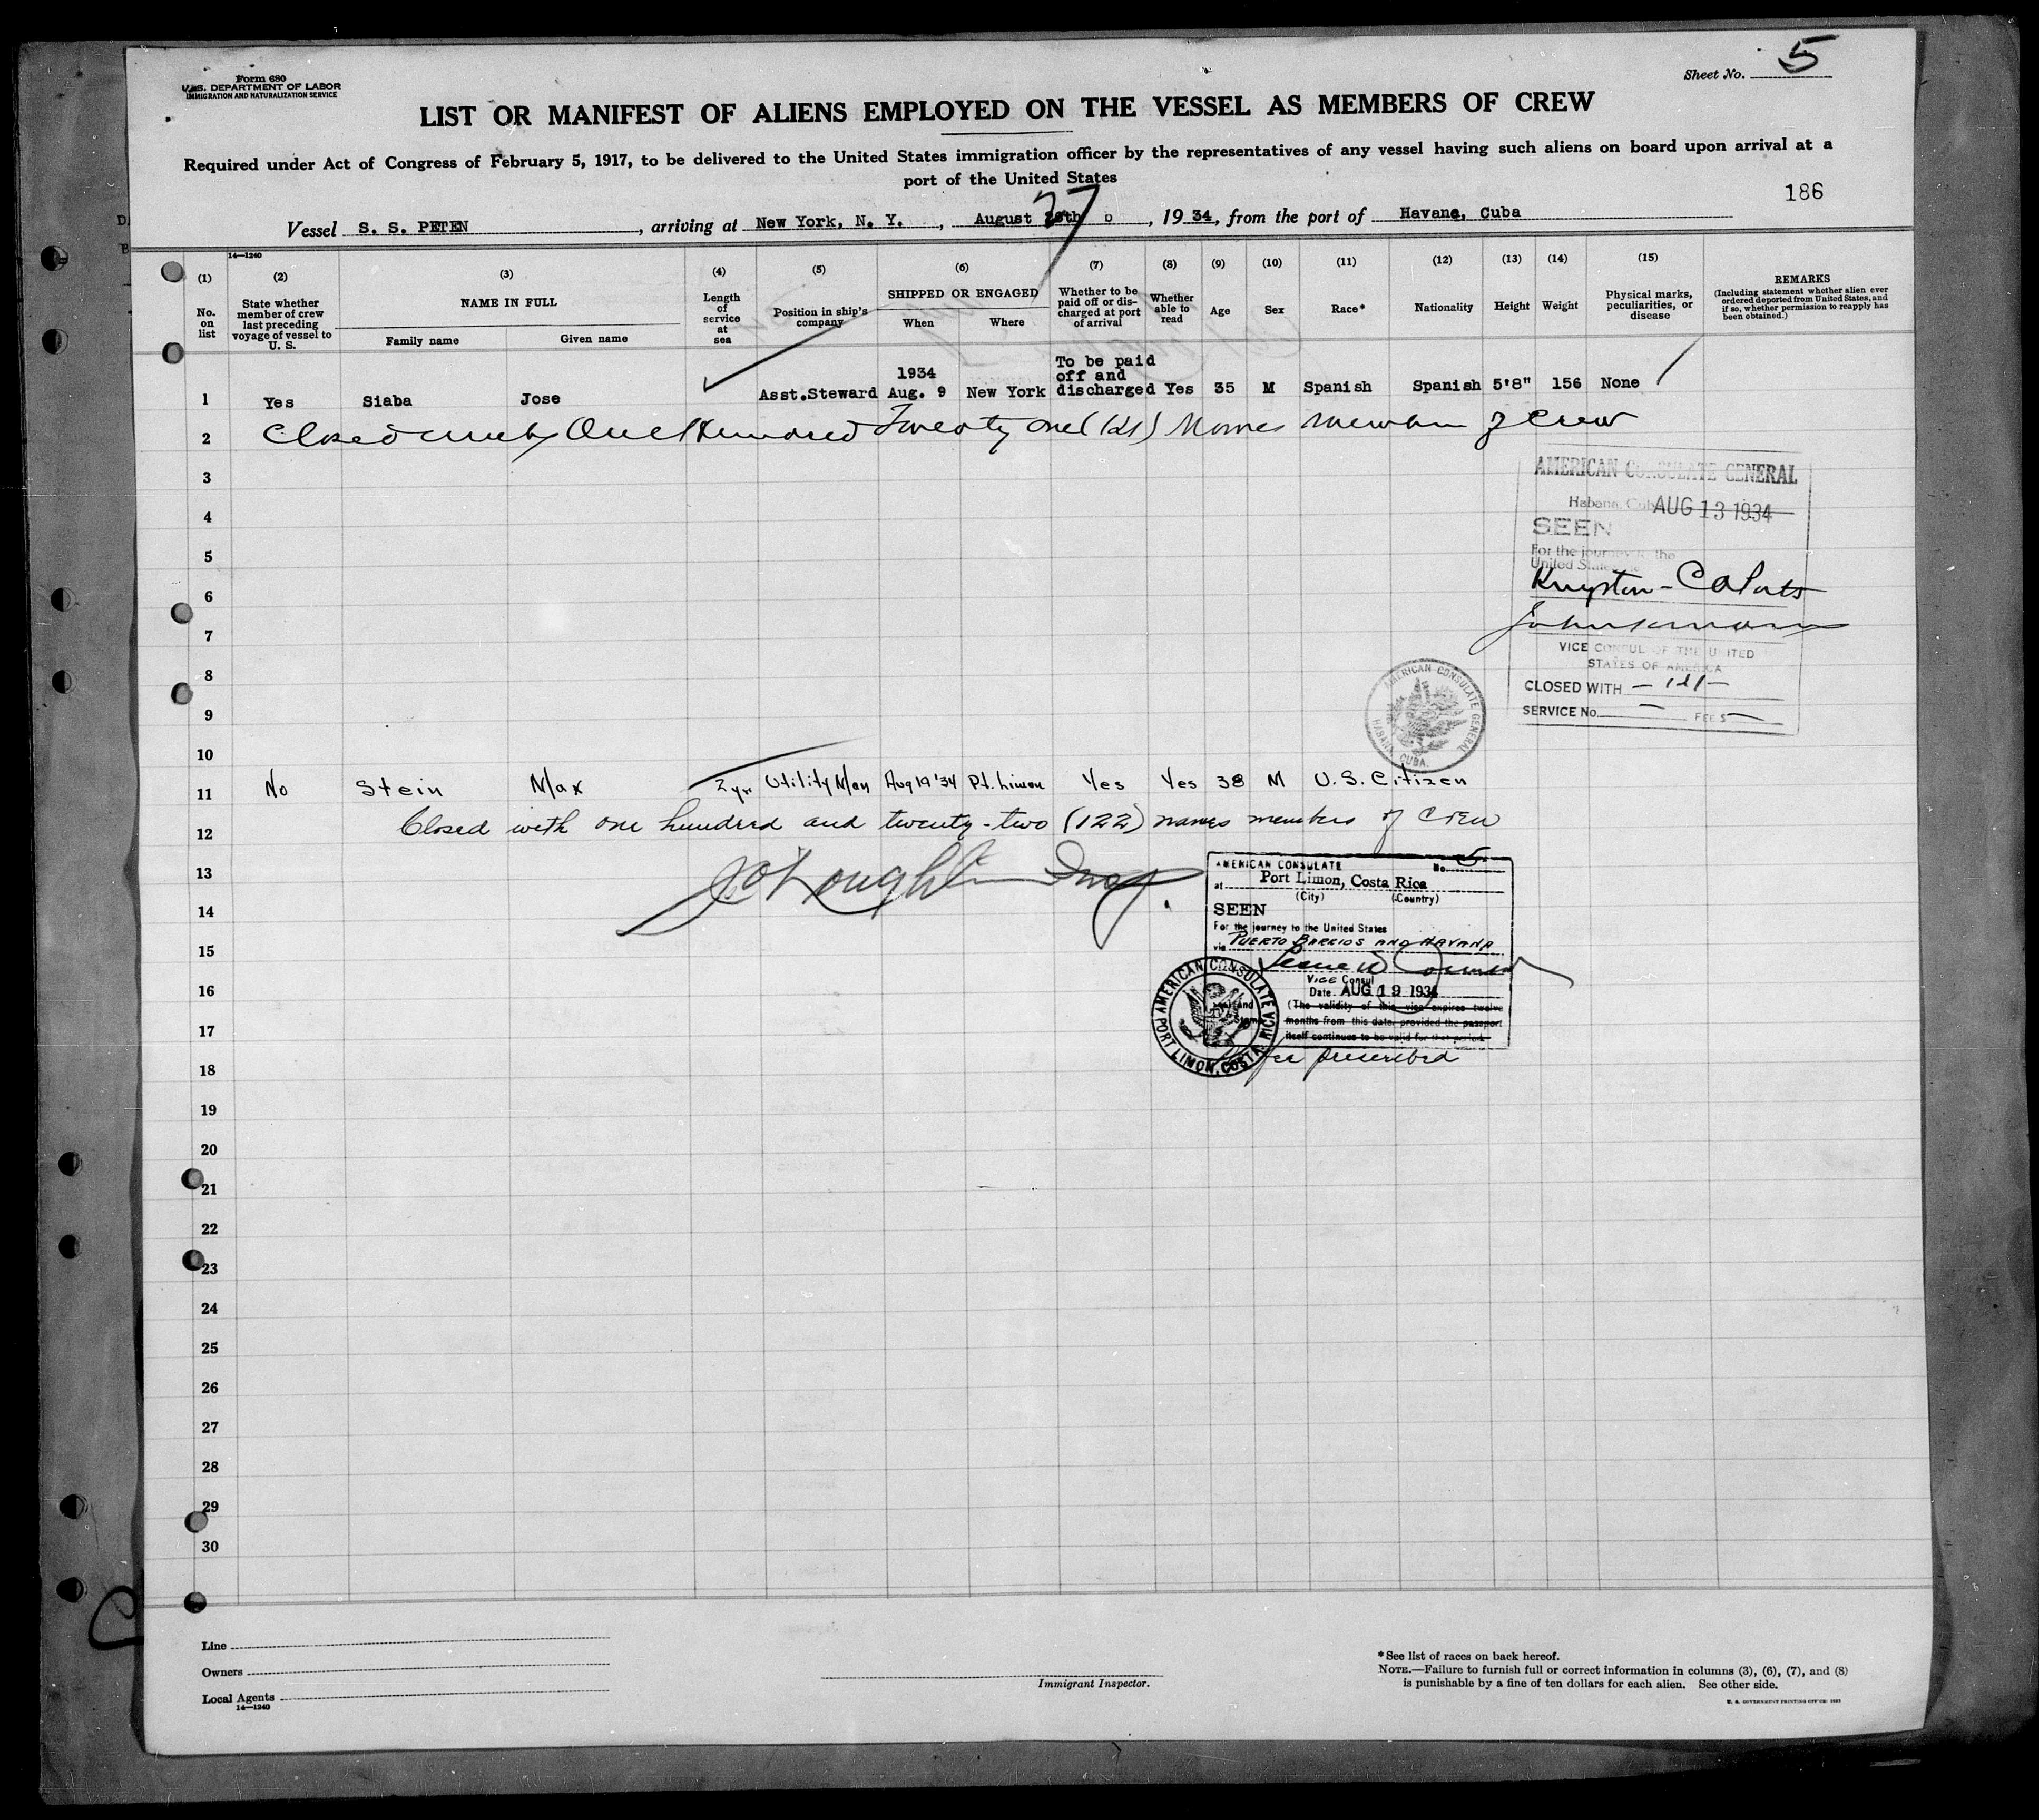 Form 680
U.S. DEPARTMENT OF LABOR
IMMIGRATION AND NATURALIZATION SERVICE
Sheet No. 5
LIST OR MANIFEST OF ALIENS EMPLOYED ON THE VESSEL AS MEMBERS OF CREW
Required under Act of Congress of February 5, 1917, to be delivered to the United States immigration officer by the representatives of any vessel having such aliens on board upon arrival at a
port of the United States
186
Vessel S. S. PETEN, arriving at New York, N. Y., August 27, 1934, from the port of Havana, Cuba
14—1240
(1) (2) (3) (4) (5) (6) (7) (8) (9) (10) (11) (12) (13) (14) (15)
No. on list
State whether member of crew last preceding voyage of vessel to U. S.
NAME IN FULL
Family name Given name
Length of service at sea
Position in ship's company
SHIPPED OR ENGAGED
When Where
Whether to be paid off or discharged at port of arrival
Whether able to read
Age
Sex
Race*
Nationality
Height
Weight
Physical marks, peculiarities, or disease
REMARKS
(Including statement whether alien ever ordered deported from United States, and if so, whether permission to reapply has been obtained.)
1 Yes Siaba Jose Asst.Steward 1934 Aug. 9 New York To be paid off and discharged Yes 35 M Spanish Spanish 5'8" 156 None
2 Closed with One Hundred Twenty one (121) Names members of Crew
3
AMERICAN CONSULATE GENERAL
4
Habana, Cuba AUG 13 1934
SEEN
5
For the journey to the
United States
6
7
VICE CONSUL OF THE UNITED
STATES OF AMERICA
8
CLOSED WITH — 121 —
9
SERVICE No. — FEE $ —
AMERICAN CONSULATE GENERAL
HABANA, CUBA.
10
11 No Stein Max 2 yrs Utility Man Aug 19 '34 Pt. Limon Yes Yes 38 M U. S. Citizen
12 Closed with one hundred and twenty-two (122) names members of crew
13
AMERICAN CONSULATE No. 5
at Port Limon, Costa Rica
(City) (Country)
14
SEEN
For the journey to the United States
15
via PUERTO BARRIOS AND HAVANA
Vice Consul
16
Date. AUG 19 1934
(The validity of this vise expires twelve
17
months from this date, provided the passport
itself continues to be valid for that period.
AMERICAN CONSULATE
PORT LIMON, COSTA RICA
fee prescribed
18
19
20
21
22
23
24
25
26
27
28
29
30
Line
Owners
Local Agents
14—1240
Immigrant Inspector.
*See list of races on back hereof.
NOTE.—Failure to furnish full or correct information in columns (3), (6), (7), and (8)
is punishable by a fine of ten dollars for each alien. See other side.